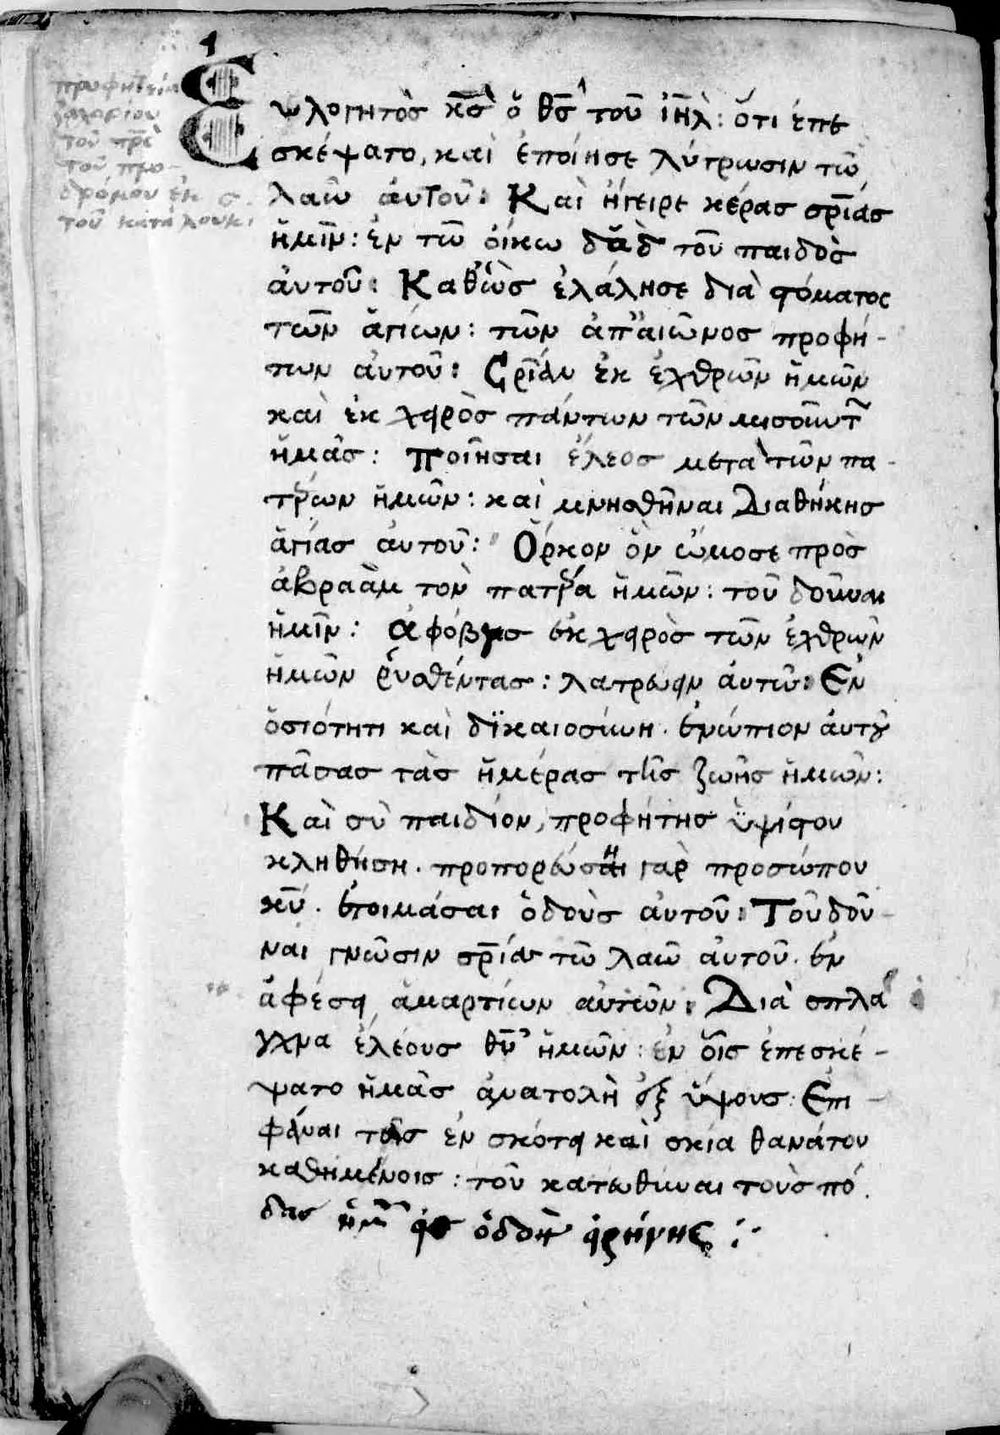 προφητεία
ζαχαρίου
τοῦ πρ̅ς
τοῦ προ-
δρόμου ἐκ
τοῦ κατὰ λουκ.
Ἐυλογητὸς κ̅ς ὁ θ̅ς τοῦ ἰη̅λ: ὅτι ἐπε
σκέψατο, καὶ ἐποίησε λύτρωσιν τῶ
λαῶ ἀυτοῦ: Καὶ ἤγειρε κέρας σρ̅ίας
ἡμῖν: ἐν τῶ ὄικω δα̅δ τοῦ παιδὸς
ἀυτοῦ: Καθὼς ἐλάλησε διὰ στόματος
τῶν ἁγίων: τῶν ἀπ' αἰῶνος προφή-
των ἀυτοῦ: Σρ̅ίαν ἐκ ἐχθρῶν ἡμῶν
καὶ ἐκ χειρὸς πάντων τῶν μισοῦντ̅
ἡμᾶς: Ποιῆσαι ἔλεος μετὰ τῶν πα-
τέρων ἡμῶν: καὶ μνησθῆναι Διαθήκης
ἁγίας ἀυτοῦ: Ὅρκον ὃν ὤμοσε πρὸς
ἀβραὰμ τὸν πατέρα ἡμῶν: τοῦ δοῦναι
ἡμῖν: ἀφόβως ἐκ χειρὸς τῶν ἐχθρῶν
ἡμῶν ῥυσθέντας: λατρεύειν ἀυτῶ: Ἐν
ὁσιότητι καὶ δϊκαιοσύνη. ἐνώπιον ἀυτοῦ
πᾶσας τὰς ἡμέρας τῆς ζωῆς ἡμῶν:
Καὶ σὺ παιδίον, προφήτης ὑψίστου
κληθήση. προπορεύση γὰρ προσώπου
κ̅υ. ἑτοιμάσαι ὁδοὺς ἀυτοῦ: Τοῦ δοῦ-
ναι γνῶσιν σρ̅ίας τῶ λαῶ ἀυτοῦ. ἐν
ἀφέσει ἁμαρτίων αὐτῶν: Διὰ σπλά
γχνα ἐλέους θ̅υ ἡμῶν: ἐν ὅις ἐπεσκέ-
ψατο ἡμᾶς ἀνατολὴ ἐξ ὕψους: Ἐπι-
φάναι τοῖς ἐν σκότει καὶ σκιᾶ θανάτου
καθημένοις: τοῦ κατευθῦναι τοὺς πό
δας ἡμ̅ εἰς ὁδὸν εἰρήνης :·